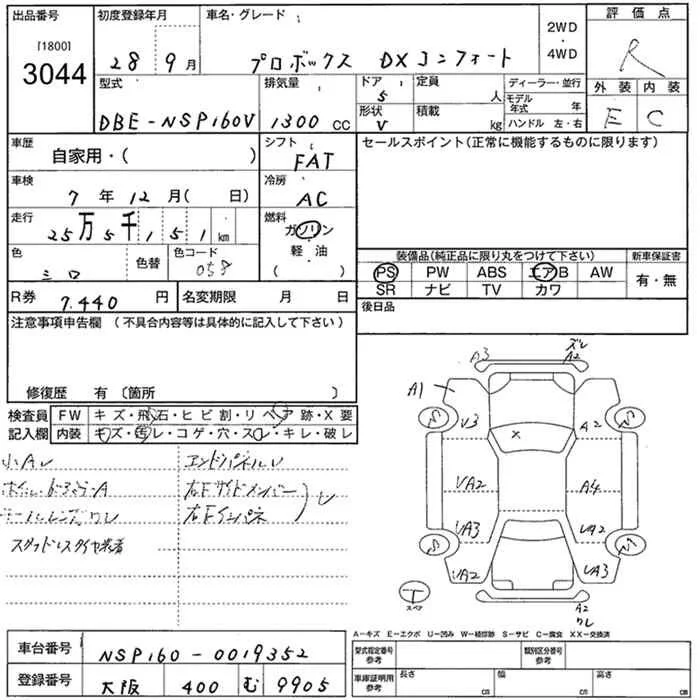 出品番号 初度登録年月 車名・グレード 評価点
[1800]
3044
28 9月 プロボックス DXコンフォート 2WD・4WD R
型式 排気量 ドア 定員 ディーラー・並行 外装 内装
DBE-NSP160V 1300 CC 5 人 モデル年式 年 E C
形状 V 積載 kg ハンドル 左・右
車歴 自家用・( ) シフト FAT セールスポイント(正常に機能するものに限ります)
車検 7年12月( 日) 冷房 AC
走行 25万5千151km 燃料 ガソリン・軽油・( )
色 シロ 色替 色コード 058
装備品(純正品に限り丸をつけて下さい) 新車保証書
PS PW ABS エアB AW 有・無
SR ナビ TV カワ
R券 7.440円 名変期限 月 日 後日品
注意事項申告欄(不具合内容等は具体的に記入して下さい)
修復歴 有〔箇所 〕
検査員記入欄 FW キズ・飛石・ヒビ割・リペア跡・X要
内装 キズ・汚レ・コゲ・穴・スレ・キレ・破レ
小Aレ エンドパネルレ
A 右Fサイドメンバー
右Fインパネ レ
スタッドレスタイヤ装着
A3 ズレ A2
A1
V3 A2
VA2 A4
VA3 VA2
VA2 VA3
T
スペア
A2
ワレ
A-キズ E-エクボ U-凹み W-補修跡 S-サビ C-腐食 XX-交換済
車台番号 NSP160-0019352 型式指定番号 参考 類別区分番号 参考
登録番号 大阪 400 む 9905 車庫証明用 参考 長さ cm 幅 cm 高さ cm